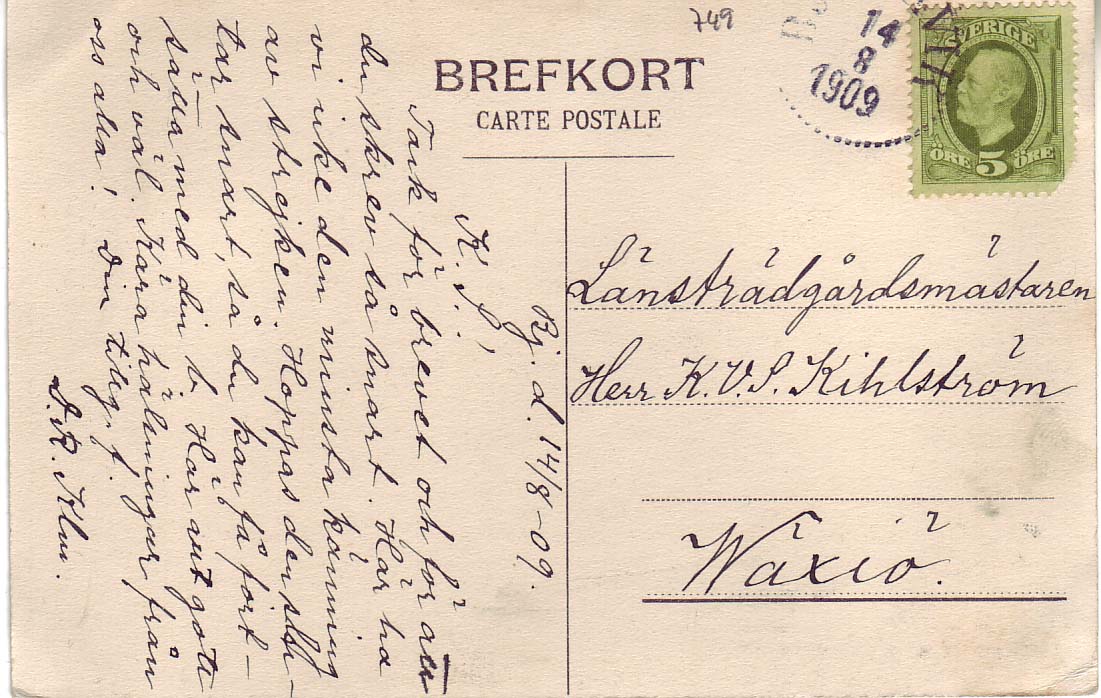 749
14
8
1909
SVERIGE
ÖRE 5 ÖRE
BREFKORT
CARTE POSTALE
Länsträdgårdsmästaren
Herr K.V.S. Kihlström
Wäxiö.
Rj. d. 14/8-09.
K. S.
Tack för brevet och för att
du skrev så snart. Här ha
vi icke den minsta känning
av strejken. Hoppas den slu-
tar snart, så du kan få fort-
sätta med din b. Här allt gott
och väl. Kära hälsningar från
oss alla! Din tillg. f.